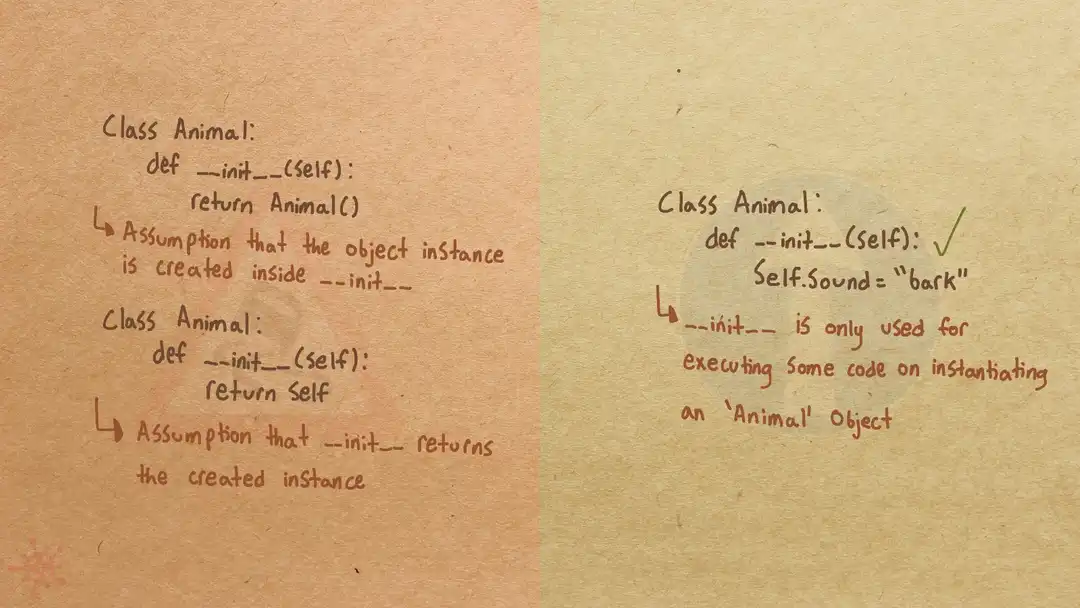 Class Animal:
def __init__(self):
return Animal()
Assumption that the object instance
is created inside __init__
Class Animal:
def __init__(self):
return Self
Assumption that __init__ returns
the created instance
Class Animal:
def __init__(self):
Self.Sound = "bark"
__init__ is only used for
executing Some code on instantiating
an 'Animal' Object